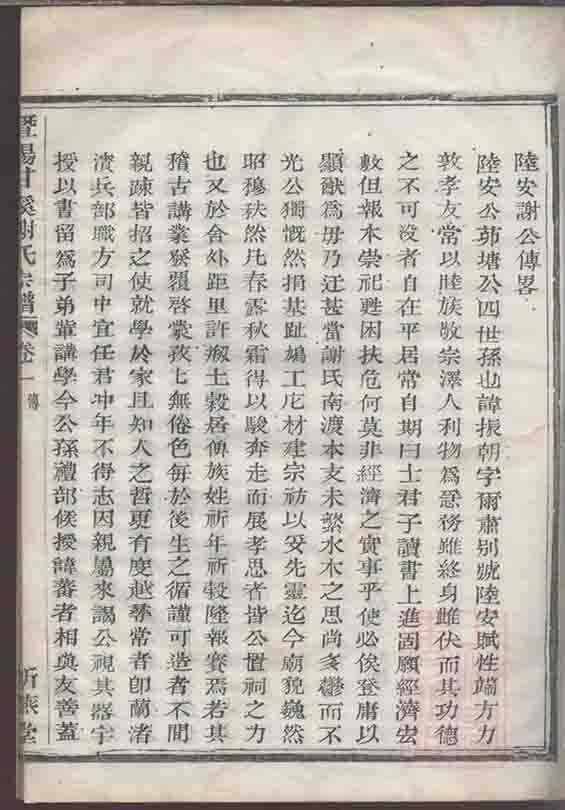 陸安謝公傳畧
陸安公茆塘公四世孫也諱振朝字爾肅別號陸安賦性端方力
敦孝友常以睦族敬宗澤人利物爲急務雖終身雌伏而其功德
之不可没者自在平居常自期曰士君子讀書上進固願經濟宏
敷但報本崇祀甦困扶危何莫非經濟之實事乎使必俟登庸以
顯猷爲毋乃迂甚當謝氏南渡本支未繁水木之思尚多鬱而不
光公獨慨然捐基趾鳩工庀材建宗祊以妥先靈迄今廟貌巍然
昭穆秩然凡春露秋霜得以駿奔走而展孝思者皆公置祠之力
也又於舍外距里許立土穀居傳族姓祈年祈穀隆報賽焉若其
稽古講業發覆啓蒙孜孜無倦色每於後生之循謹可造者不間
親疎皆招之使就學於家且知人之哲更有度越尋常者卽蘭渚
濆兵部職方司中宜任君冲年不得志因親屬來謁公視其器宇
授以書留爲子弟輩講學今公孫禮部候授諱蕃者相與友善蓋
暨陽甘溪謝氏宗譜 卷一 傳